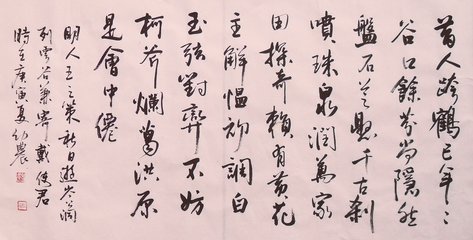 昔人跨鶴已年々
谷口餘芬尚隱然
盤石之興千古剎
噴珠泉潤萬家
田探奇賴有黃花
主解慍初調白
玉弦對弈不妨
柯斧爛葛洪原
是會中僊
明人王之策秋日遊岑洞
列雲谷兼寄戴使君
時在庚寅夏幼農